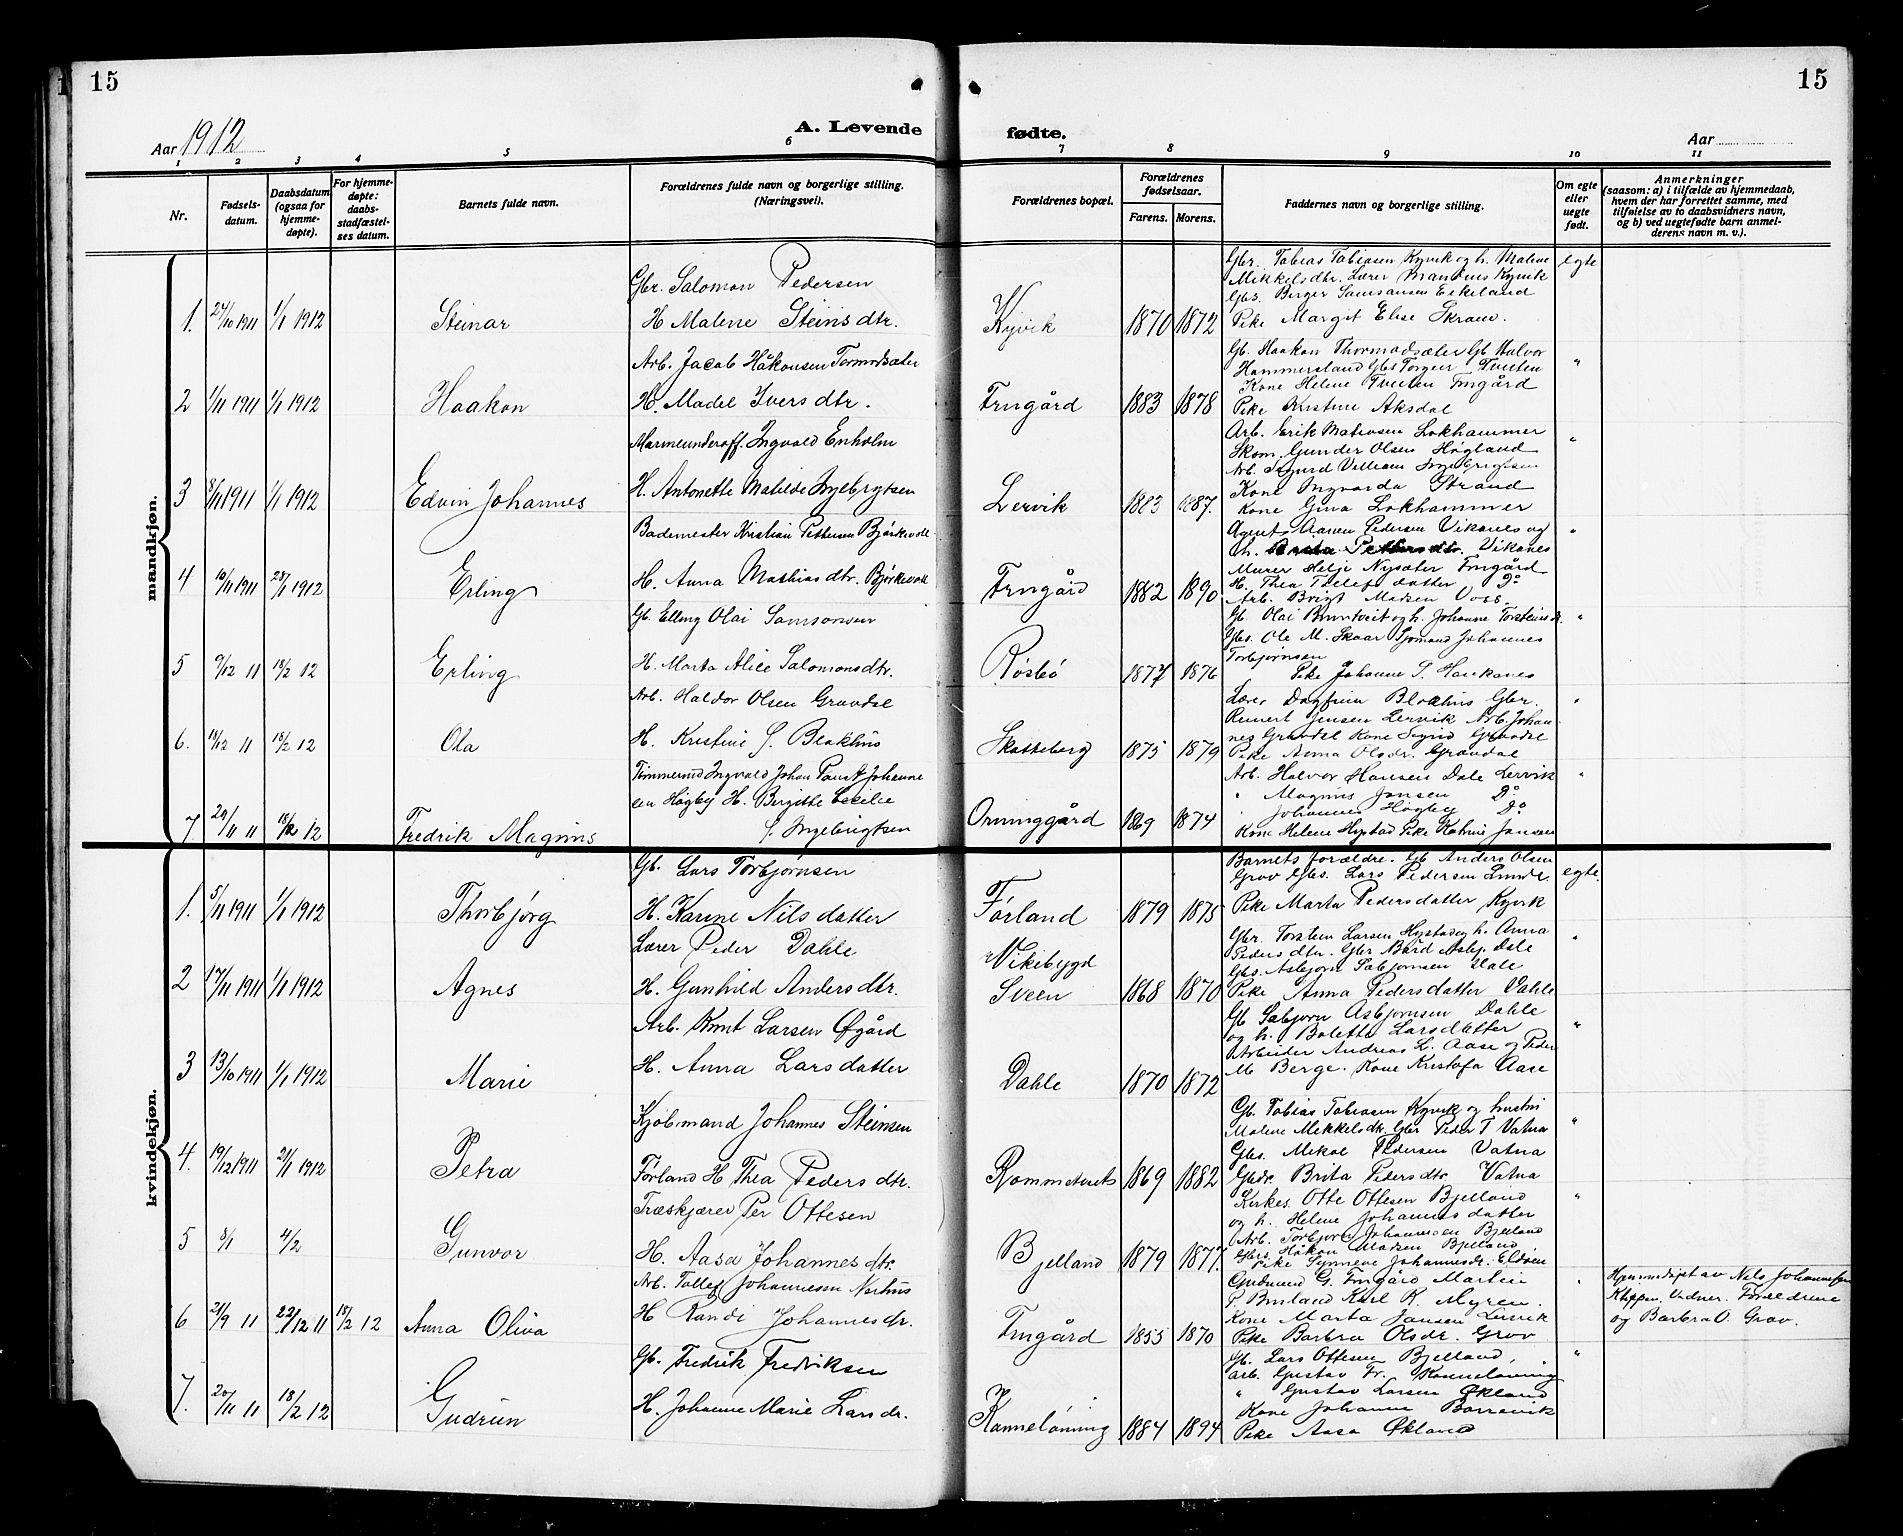 15
15
Aar 1912
A. Levende fødte.
Aar
1 2 3 4 5 6 7 8 9 10 11
Nr.
Fødsels-
datum.
Daabsdatum
(ogsaa for
hjemme-
døpte).
For hjemme-
døpte:
daabs-
stadfæstel-
ses datum.
Barnets fulde navn.
Forældrenes fulde navn og borgerlige stilling.
(Næringsvei).
Forældrenes bopæl.
Forældrenes
fødselsaar.
Farens. Morens.
Faddernes navn og borgerlige stilling.
Om egte
eller
uegte
født.
Anmerkninger
(saasom: a) i tilfælde av hjemmedaab,
hvem der har forrettet samme, med
tilføielse av to daabsvidners navn,
og b) ved uegtefødte barn anmel-
derens navn m. v.).
mandkjøn.
Gbr. Salomon Pedersen
1. 24/10 1911 1/1 1912 Steinar H Malene Steinsdtr. Kyvik 1870 1872
Gbr. Tobias Tobiasen Kyvik og h. Malene
Mikkelsdtr. Lærer Kyvik
Gbs. Berger Samsonsen Eikeland
Pike Margit Elise Skram.
egte
Arb. Jacob Håkonsen Tormodsæter
2 1/11 1911 1/1 1912 Haakon H. Madel Iversdtr. Frugård 1883 1878
Gb. Haakon Thormodsæter Gb Halvor
Hammersland Gbs Torgeir Tveiten
Kone Helene Tveiten Frugård
Pike Kristine Aksdal
"
Marineunderoff. Ingvald Enholm
3 8/11 1911 1/1 1912 Edvin Johannes H. Antonette Matilde Ingebrigtsen Lervik 1883 1887.
Arb. Erik Mathisen Lokhammer
Skom. Gunder Olsen Høgland
Arb. Sigurd Villiam Ingebrigtsen
Kone Ingvarda Strand
Kone Gina Lokhammer
"
Bademester Kristian Pettersen Bjørkevoll
4 10/11 1911 28/1 1912 Erling H. Anna Mathiasdtr. Bjørkevoll Frugård 1882 1890
Agent Aanen Pedersen Vikanes og
h. Vikanes
Murer Helje Nysæter Frugård
H. Thea Tellefsdatter Do
Arb. Brigt Madsen Voss
"
Gb. Elling Olai Samsonsen
5 9/12 11 18/2 12 Erling H. Marta Alice Salomonsdtr. Røsbø 1877 1876
Gb. Olai Bruntveit og h. Johanne Torsteinsdr.
Gbs. Ole M. Skaar Johannes
Torbjørnsen
Pike Johanne S. Haukanes
"
Arb. Haldor Olsen Gravdal
6. 18/12 11 18/2 12 Ola H. Kristine S. Blakhus Skatteberg 1875 1879
Lærer Dagfinn Blakhus Gbr.
Reinert Jensen Lervik Arb. Johan-
nes Gravdal Kone Sigrid Gravdal
Pike Anna Olsdr. Gravdal
"
Tømmermd Ingvald Johan Johanne
sen Høgby H. Birgitte Cecilie
7. 29/11 11 18/2 12 Fredrik Magnus S. Ingebrigtsen Onninggård 1869 1874
Arb. Halvor Hansen Dale Lervik
" Magnus Jansen Do
" Johannes Høgby Do
Kone Helene Hystad Pike Katrine Jansen
"
kvindekjøn.
Gb. Lars Torbjørnsen
1. 5/11 1911 1/1 1912 Thorbjørg H. Karine Nilsdatter Førland 1879 1875
Barnets forældre. Gb Anders Olsen
Grov Gbs. Lars Pedersen Lunde
Pike Marta Pedersdatter Kyvik
egte
Lærer Peder Dahle
2 17/11 1911 1/1 1912 Agnes H. Gunhild Andersdtr. Vikebygd
Sveen 1868 1870
Gbr. Torstein Larsen Hystad og h. Anna
Pedersdtr. Gbr Bård Asbj. Dale
Gbs. Asbjørn Sæbjørnsen Dale
Pike Anna Pedersdatter Dahle
"
Arb. Knut Larsen Øfgård
3 13/10 1911 1/1 1912 Marie H. Anna Larsdatter Dahle 1870 1872
Gb Sæbjørn Asbjørnsen Dahle
og h. Bolette Larsdatter
Arbeider Andreas L. Aase og Peder
M Berge. Kone Kristofa Aase
"
Kjøbmand Johannes Steinsen
4. 19/12 1911 21/1 1912 Petra Førland H Thea Pedersdtr. Rommetveit 1869 1882
Gb. Tobias Tobiasen Kyvik og hustru
Malene Mikkelsdr. Gbr Peder T Vatna
Gbs. Mikal Pedersen Vatna
Gbdr. Brita Pedersdtr. Vatna
"
Træskjærer Per Ottesen
5 8/1 4/2 Gunvor H. Aasa Johannesdtr. Bjelland 1879 1877.
Kirkes. Otte Ottesen Bjelland
og h. Helene Johannesdatter
Arb. Torbjørn Johannessen Bjelland
Gbs. Håkon Madsen Bjelland
Pike Synneve Johannesdr. Eldøien
"
Arb. Tollef Johannesen Nerhus
6 21/9 11 22/12 11 18/2 12 Anna Oliva H Randi Johannesdr. Frugård 1855 1870
Gudmund G. Frugård Martin
P Karl K. Myren.
Kone Marta Jansen Lervik
Pike Barbra Olsdr. Grov
"
Hjemmedøpt av Nils Johannesen
Klippen. Vidner. Forældrene
og Barbra O. Grov.
Gb. Fredrik Fredriksen
7. 20/11 11 18/2 12 Gudrun H. Johanne Marie Larsdr. Kanneløning 1884 1894
Gb. Lars Ottesen Bjelland,
arb. Gustav Fr. Kanneløning
" Gustav Larsen Økland
Kone Johanne Borrevik
Pike Aasa Økland
"